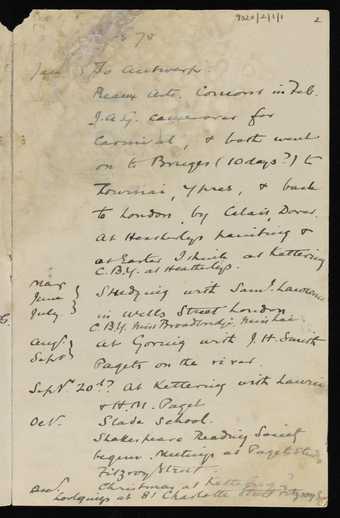 9020/2/1/1 2
1878
Jan 5 To Antwerp.
Beaux Arts. Concours in Feb.
J.A.G. came over for
Carnival, & both went
on to Bruges (10 days?) to
Tournai, Ypres, & back
to London, by Calais, Dover.
At Heatherleys painting &
at Easter I think at Kettering
C.B.G. at Heatherlys.
May
June
July
Studying with Saml. Lawrence
in Wells Street London.
C.B.G. Miss Broadbridge, Miss
Augt.
Sept.
At Goring with J.H. Smith
Pagets on the river.
Sept. 20th? At Kettering with Laurie
& H.M. Paget
Oct. Slade School.
Shakespeare Reading Society
begun. Meetings at Pagets
Fitzroy Street.
Dec. Christmas at Kettering?
Lodgings at 81 Charlotte Street Fitzroy Sq